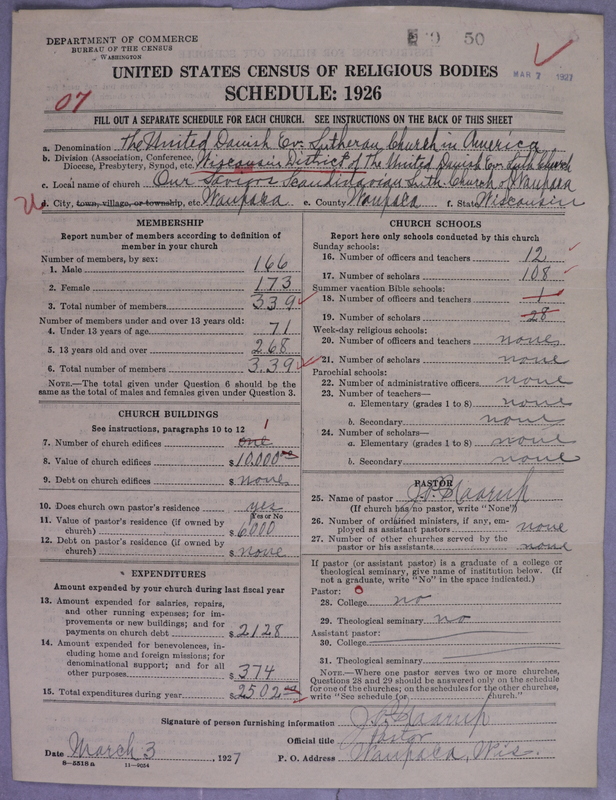 DEPARTMENT OF COMMERCE
BUREAU OF THE CENSUS
WASHINGTON
50
MAR 7 1927
UNITED STATES CENSUS OF RELIGIOUS BODIES
SCHEDULE: 1926
07
FILL OUT A SEPARATE SCHEDULE FOR EACH CHURCH. SEE INSTRUCTIONS ON THE BACK OF THIS SHEET
a. Denomination The United Danish Ev. Lutheran Church in America
b. Division (Association, Conference, Diocese, Presbytery, Synod, etc. Wisconsin District of the United Danish Ev. Luth Church
c. Local name of church Our Saviors Scandinavian Luth. Church of Waupaca
d. City, town, village, or township, etc. Waupaca e. County Waupaca f. State Wisconsin
MEMBERSHIP
Report number of members according to definition of
member in your church
Number of members, by sex:
1. Male 166
2. Female 173
3. Total number of members 339
Number of members under and over 13 years old:
4. Under 13 years of age 71
5. 13 years old and over 268
6. Total number of members 339
NOTE.—The total given under Question 6 should be
the same as the total of males and females given under Question 3.
CHURCH BUILDINGS
See instructions, paragraphs 10 to 12
7. Number of church edifices one 1
8. Value of church edifices $10,000
9. Debt on church edifices $ none
10. Does church own pastor's residence yes
Yes or No
11. Value of pastor's residence (if owned by
church) $6,000
12. Debt on pastor's residence (if owned by
church) $ none
EXPENDITURES
Amount expended by your church during last fiscal year
13. Amount expended for salaries, repairs,
and other running expenses; for im-
provements or new buildings; and for
payments on church debt $2128
14. Amount expended for benevolences, in-
cluding home and foreign missions; for
denominational support; and for all
other purposes $374
15. Total expenditures during year $2502
CHURCH SCHOOLS
Report here only schools conducted by this church
Sunday schools:
16. Number of officers and teachers 12
17. Number of scholars 108
Summer vacation Bible schools:
18. Number of officers and teachers 1
19. Number of scholars 28
Week-day religious schools:
20. Number of officers and teachers none
21. Number of scholars none
Parochial schools:
22. Number of administrative officers none
23. Number of teachers—
a. Elementary (grades 1 to 8) none
b. Secondary none
24. Number of scholars—
a. Elementary (grades 1 to 8) none
b. Secondary none
PASTOR
25. Name of pastor
(If church has no pastor, write "None")
26. Number of ordained ministers, if any, em-
ployed as assistant pastors none
27. Number of other churches served by the
pastor or his assistants none
If pastor (or assistant pastor) is a graduate of a college or
theological seminary, give name of institution below. (If
not a graduate, write "No" in the space indicated.)
Pastor:
28. College no
29. Theological seminary no
Assistant pastor:
30. College
31. Theological seminary
NOTE.—Where one pastor serves two or more churches,
Questions 28 and 29 should be answered only on the schedule
for one of the churches; on the schedules for the other churches,
write "See schedule for church."
Signature of person furnishing information
Official title Pastor
Date March 3, 1927 P. O. Address Waupaca, Wis.
8—5518 a 11—9054